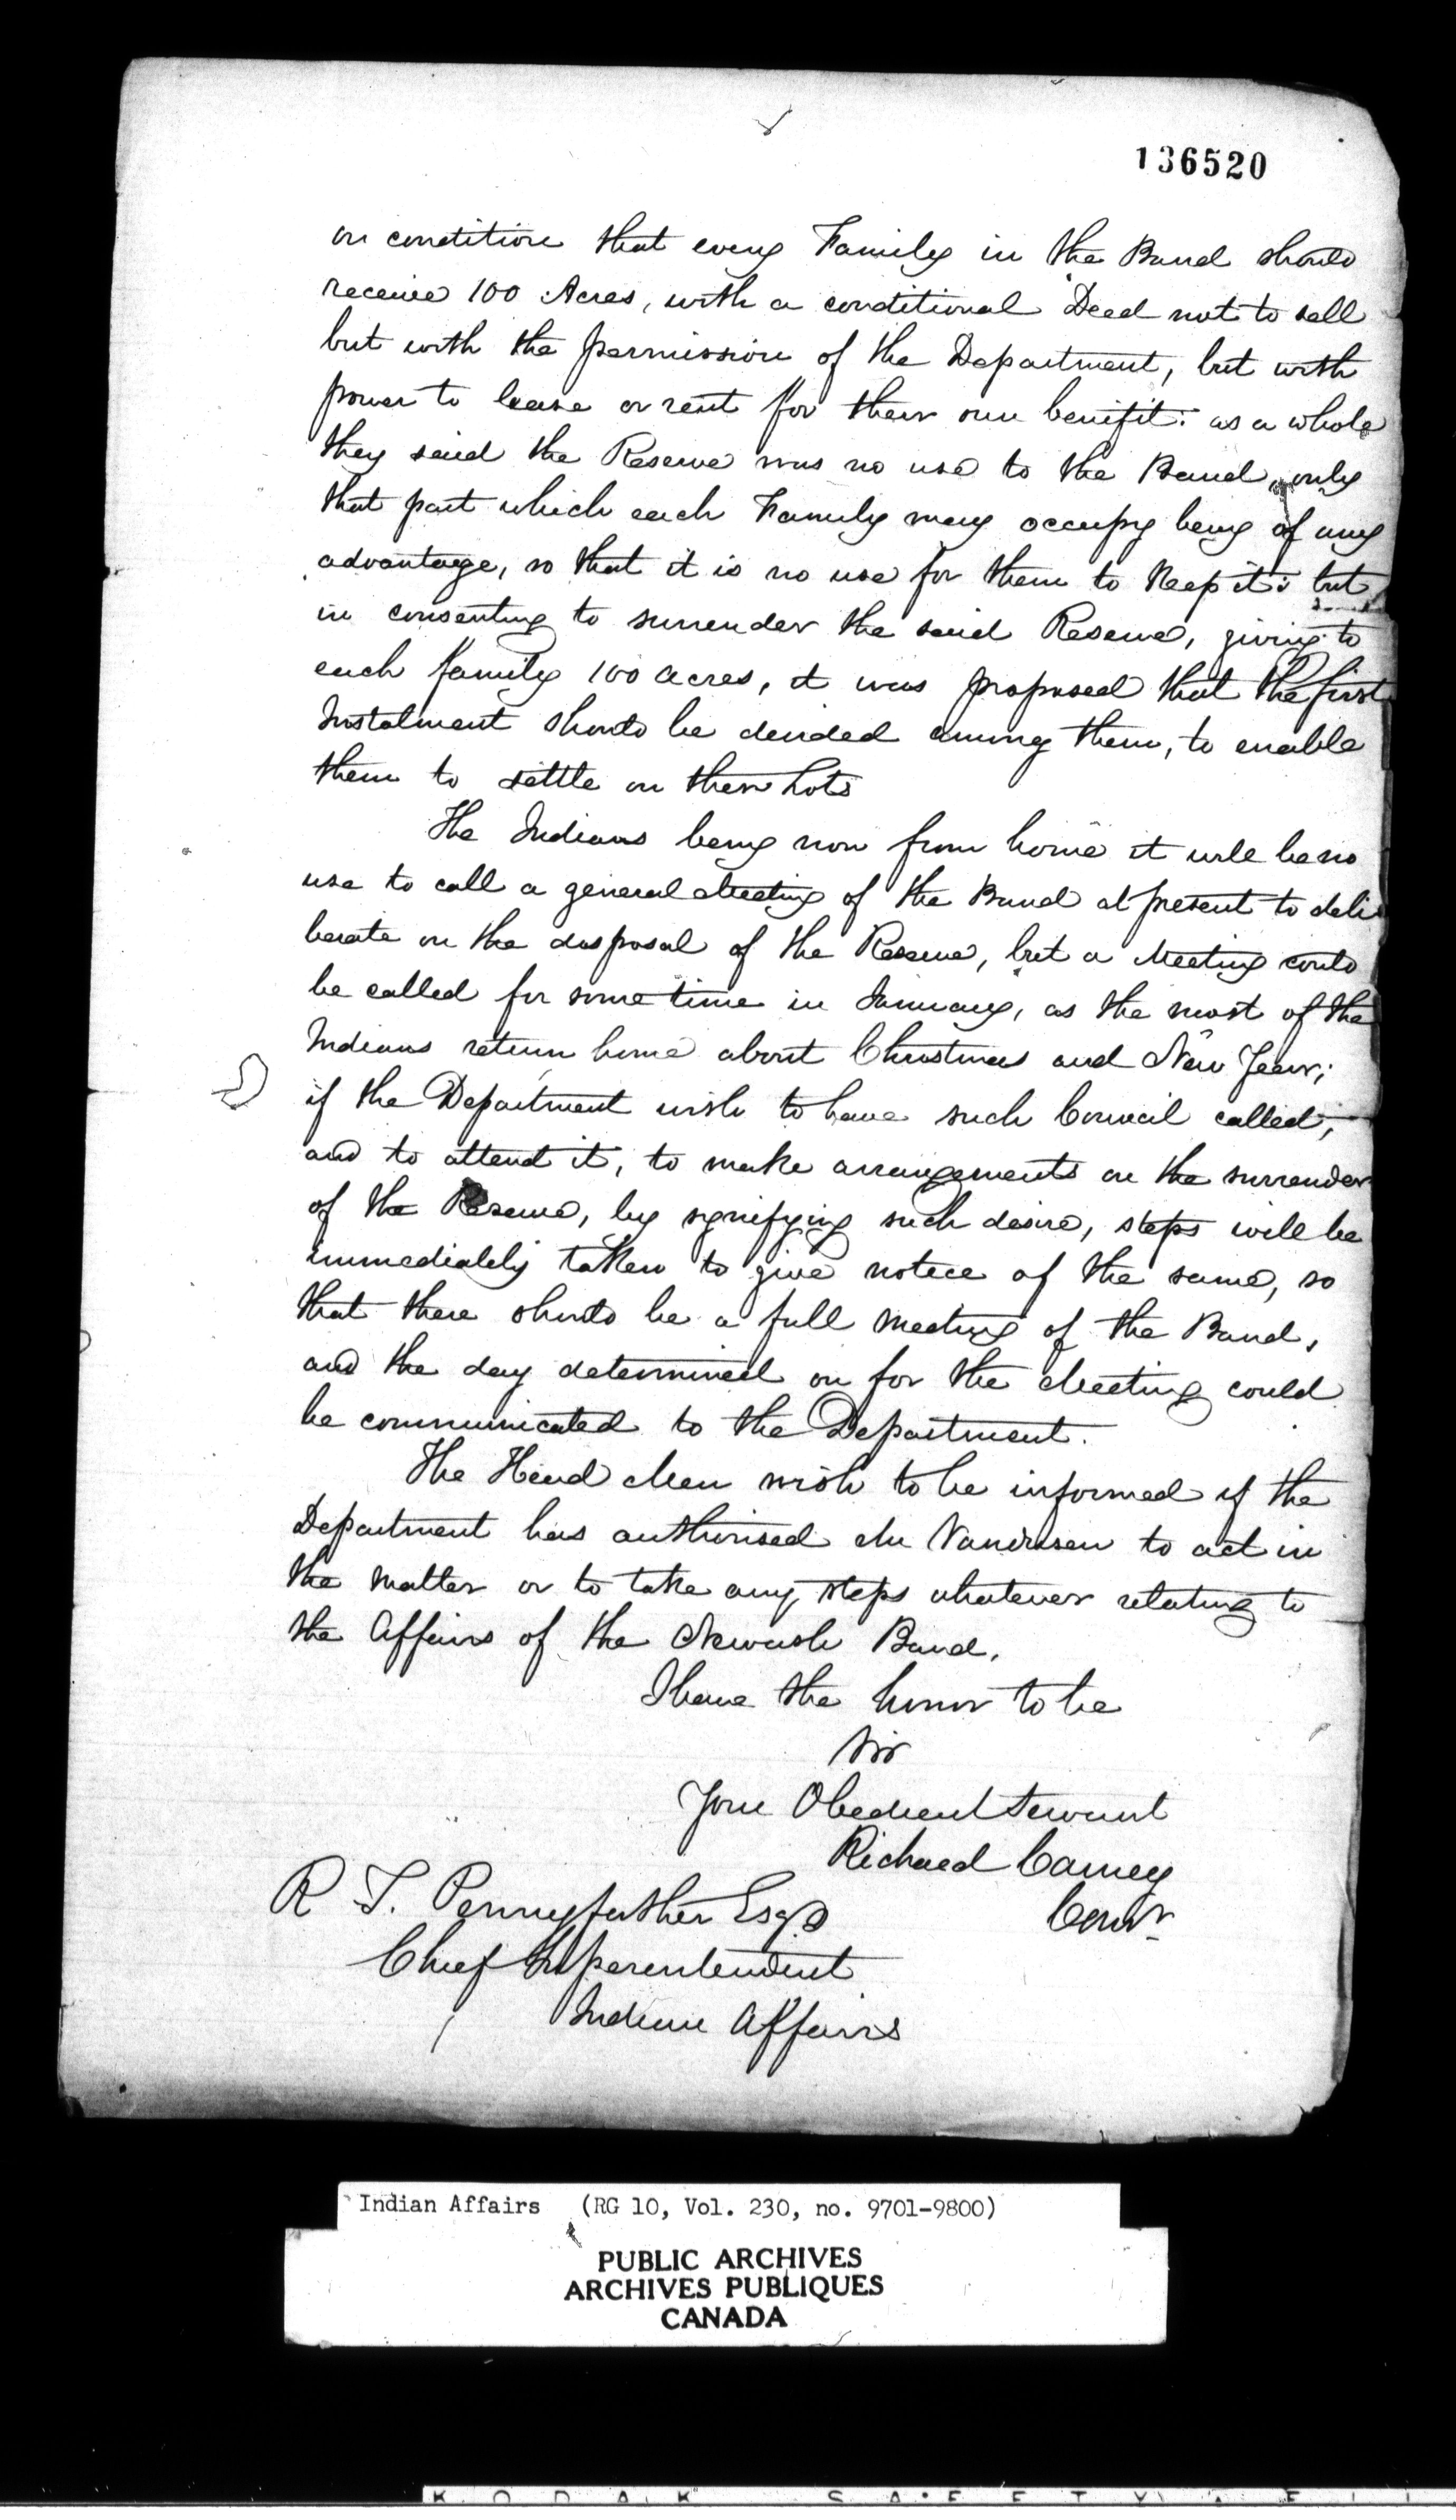 136520
on condition that every Family in the Band should
receive 100 Acres, with a conditional Deed not to sell
but with the permission of the Department, but with
power to lease or rent for their own benifit: as a whole
they said the Reserve was no use to the Band, only
that part which each Family may occupy being of any
advantage, so that it is no use for them to keep it: but
in consenting to surrender the said Reserve, giving to
each family 100 acres, it was proposed that the first
Instalment should be devided among them, to enable
them to settle on their Lots
The Indians being now from home it will be no
use to call a general Meeting of the Band at present to deli
berate on the disposal of the Reserve, but a Meeting could
be called for some time in January, as the most of the
Indians return home about Christmas and New Year;
if the Department wish to have such Council called,
and to attend it, to make arrangements on the surrender
of the Reserve, by signifying such desire, steps will be
immediately taken to give notice of the same, so
that there should be a full meeting of the Band,
and the day determined on for the Meeting could
be communicated to the Department.
The Head Men wish to be informed if the
Department has authorised Mr Vandusen to act in
the matter or to take any steps whatever relating to
the Affairs of the Newash Band.
I have the honor to be
Sir
Your Obedient Servant
Richard Carney
R T. Pennyfather Esqr
Chief Superentendent
Indian Affairs
Indian Affairs (RG 10, Vol. 230, no. 9701-9800)
PUBLIC ARCHIVES
ARCHIVES PUBLIQUES
CANADA
KODAK SAFETY